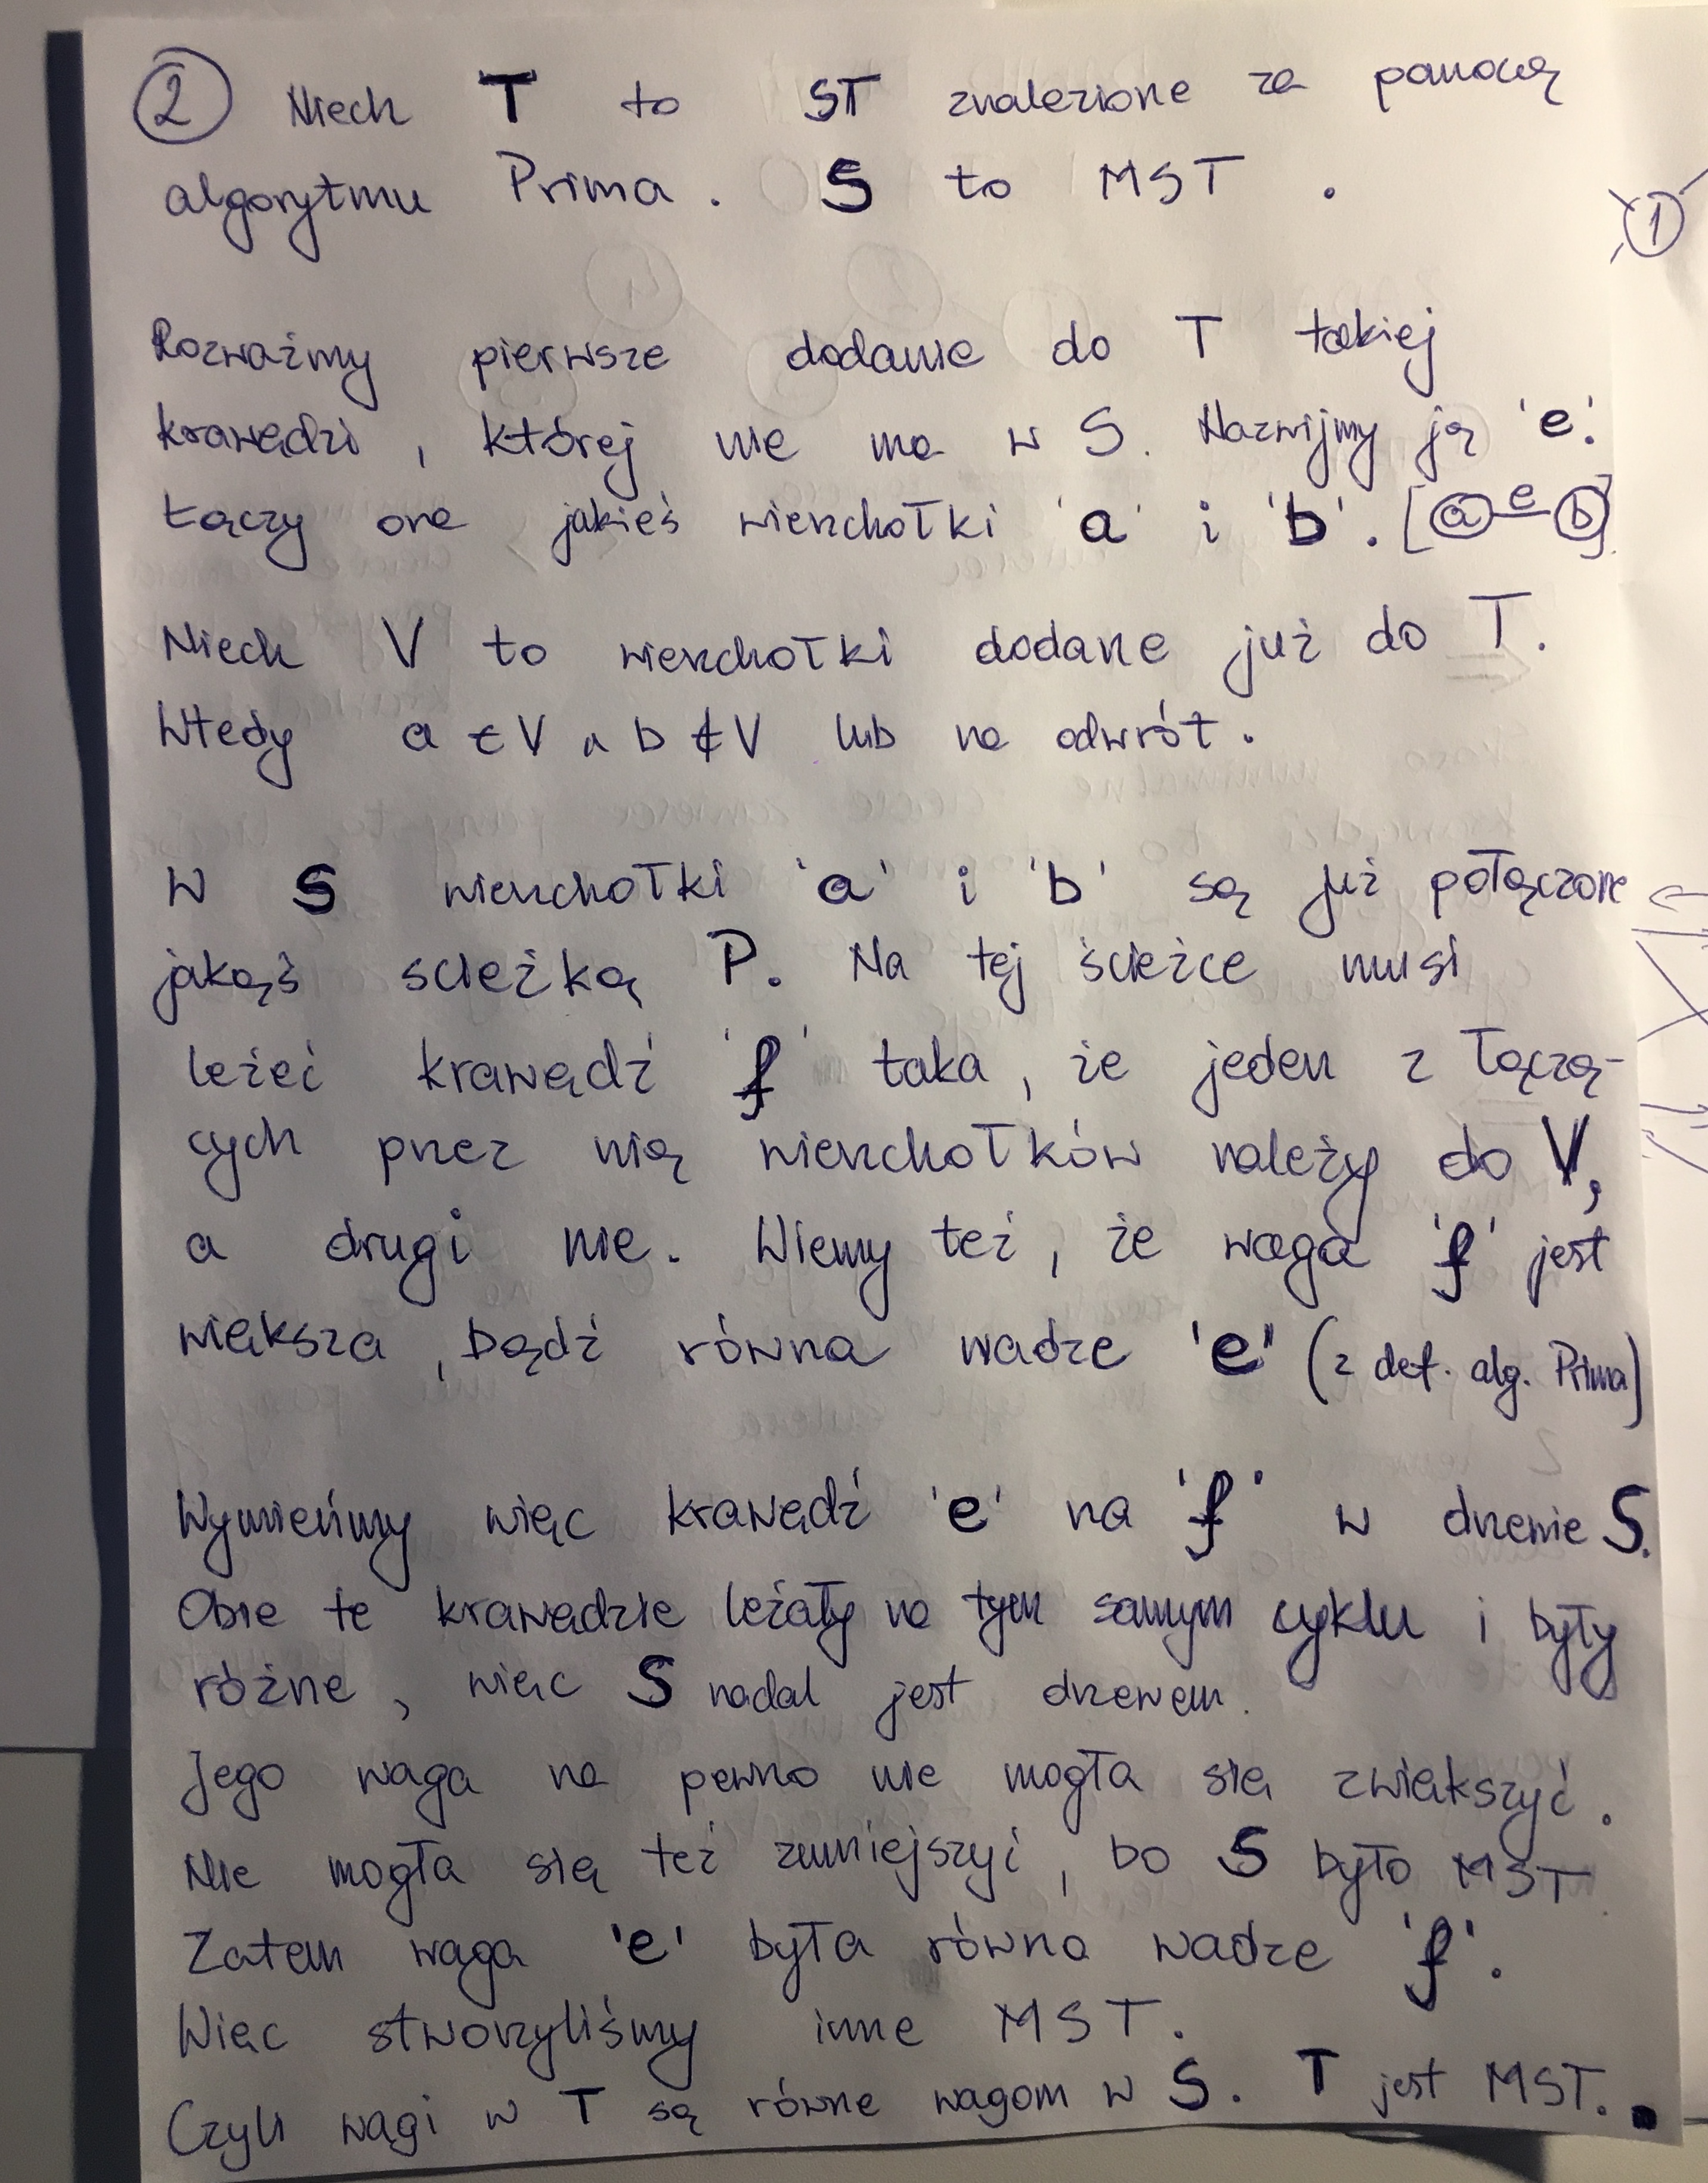 ② Niech T to ST znalezione za pomocą
algorytmu Prima. S to MST.
①
Rozważmy pierwsze dodanie do T takiej
krawędzi, której nie ma w S. Nazwijmy ją 'e'.
Łączy one jakieś wierzchołki 'a' i 'b'. [ⓐ e ⓑ].
Niech V to wierzchołki dodane już do T.
Wtedy a ∈ V ∧ b ∉ V lub na odwrót.
W S wierzchołki 'a' i 'b' są już połączone
jakąś scieżką P. Na tej ścieżce musi
leżeć krawędź 'f' taka, że jeden z łączą-
cych przez nią wierzchołków należy do V,
a drugi nie. Wiemy też, że waga 'f' jest
większa, bądź równa wadze 'e' (z def. alg. Prima)
Wymieńmy więc krawędź 'e' na 'f' w drzewie S.
Obie te krawędzie leżały na tym samym cyklu i były
różne, więc S nadal jest drzewem.
Jego waga na pewno nie mogła się zwiększyć.
Nie mogła się też zmniejszyć, bo S było MST.
Zatem waga 'e' była równa wadze 'f'.
Więc stworzyliśmy inne MST.
Czyli wagi w T są równe wagom w S. T jest MST.